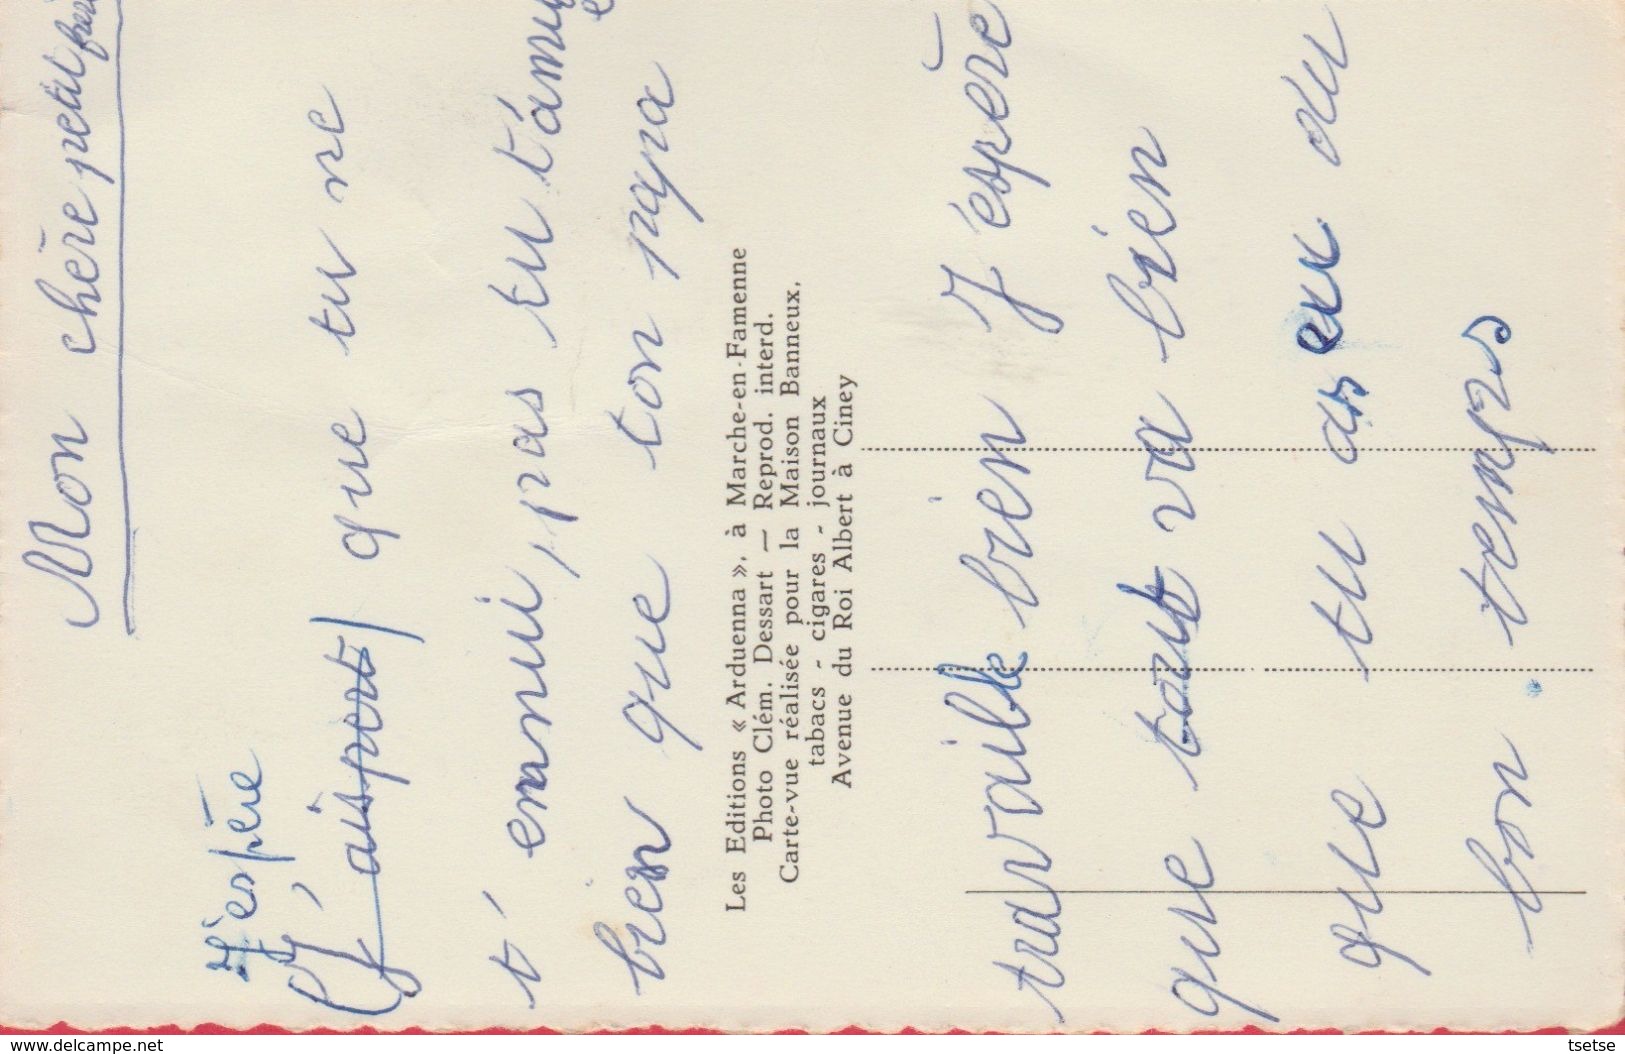 Mon chère petit frère
J'espère
(J'aispert) que tu ne
t'ennui pas tu t'amu
bien que ton papa
Les Editions « Arduenna », à Marche-en-Famenne
Photo Clém. Dessart — Reprod. interd.
Carte-vue réalisée pour la Maison Banneux,
tabacs - cigares - journaux
Avenue du Roi Albert à Ciney
travaille bien J'éspère
que tout va bien
que tu as eu du
bon temps
www.delcampe.net
tsetse